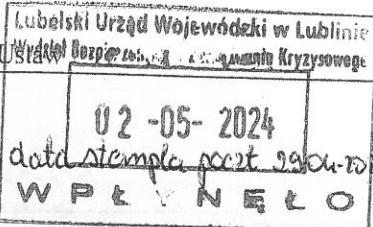 Lubelski Urząd Wojewódzki w Lublinie
Wydział Bezpieczeństwa i Zarządzania Kryzysowego
Ustaw
02 -05- 2024
data stempla poczt 29.04.20
WPŁYNĘŁO